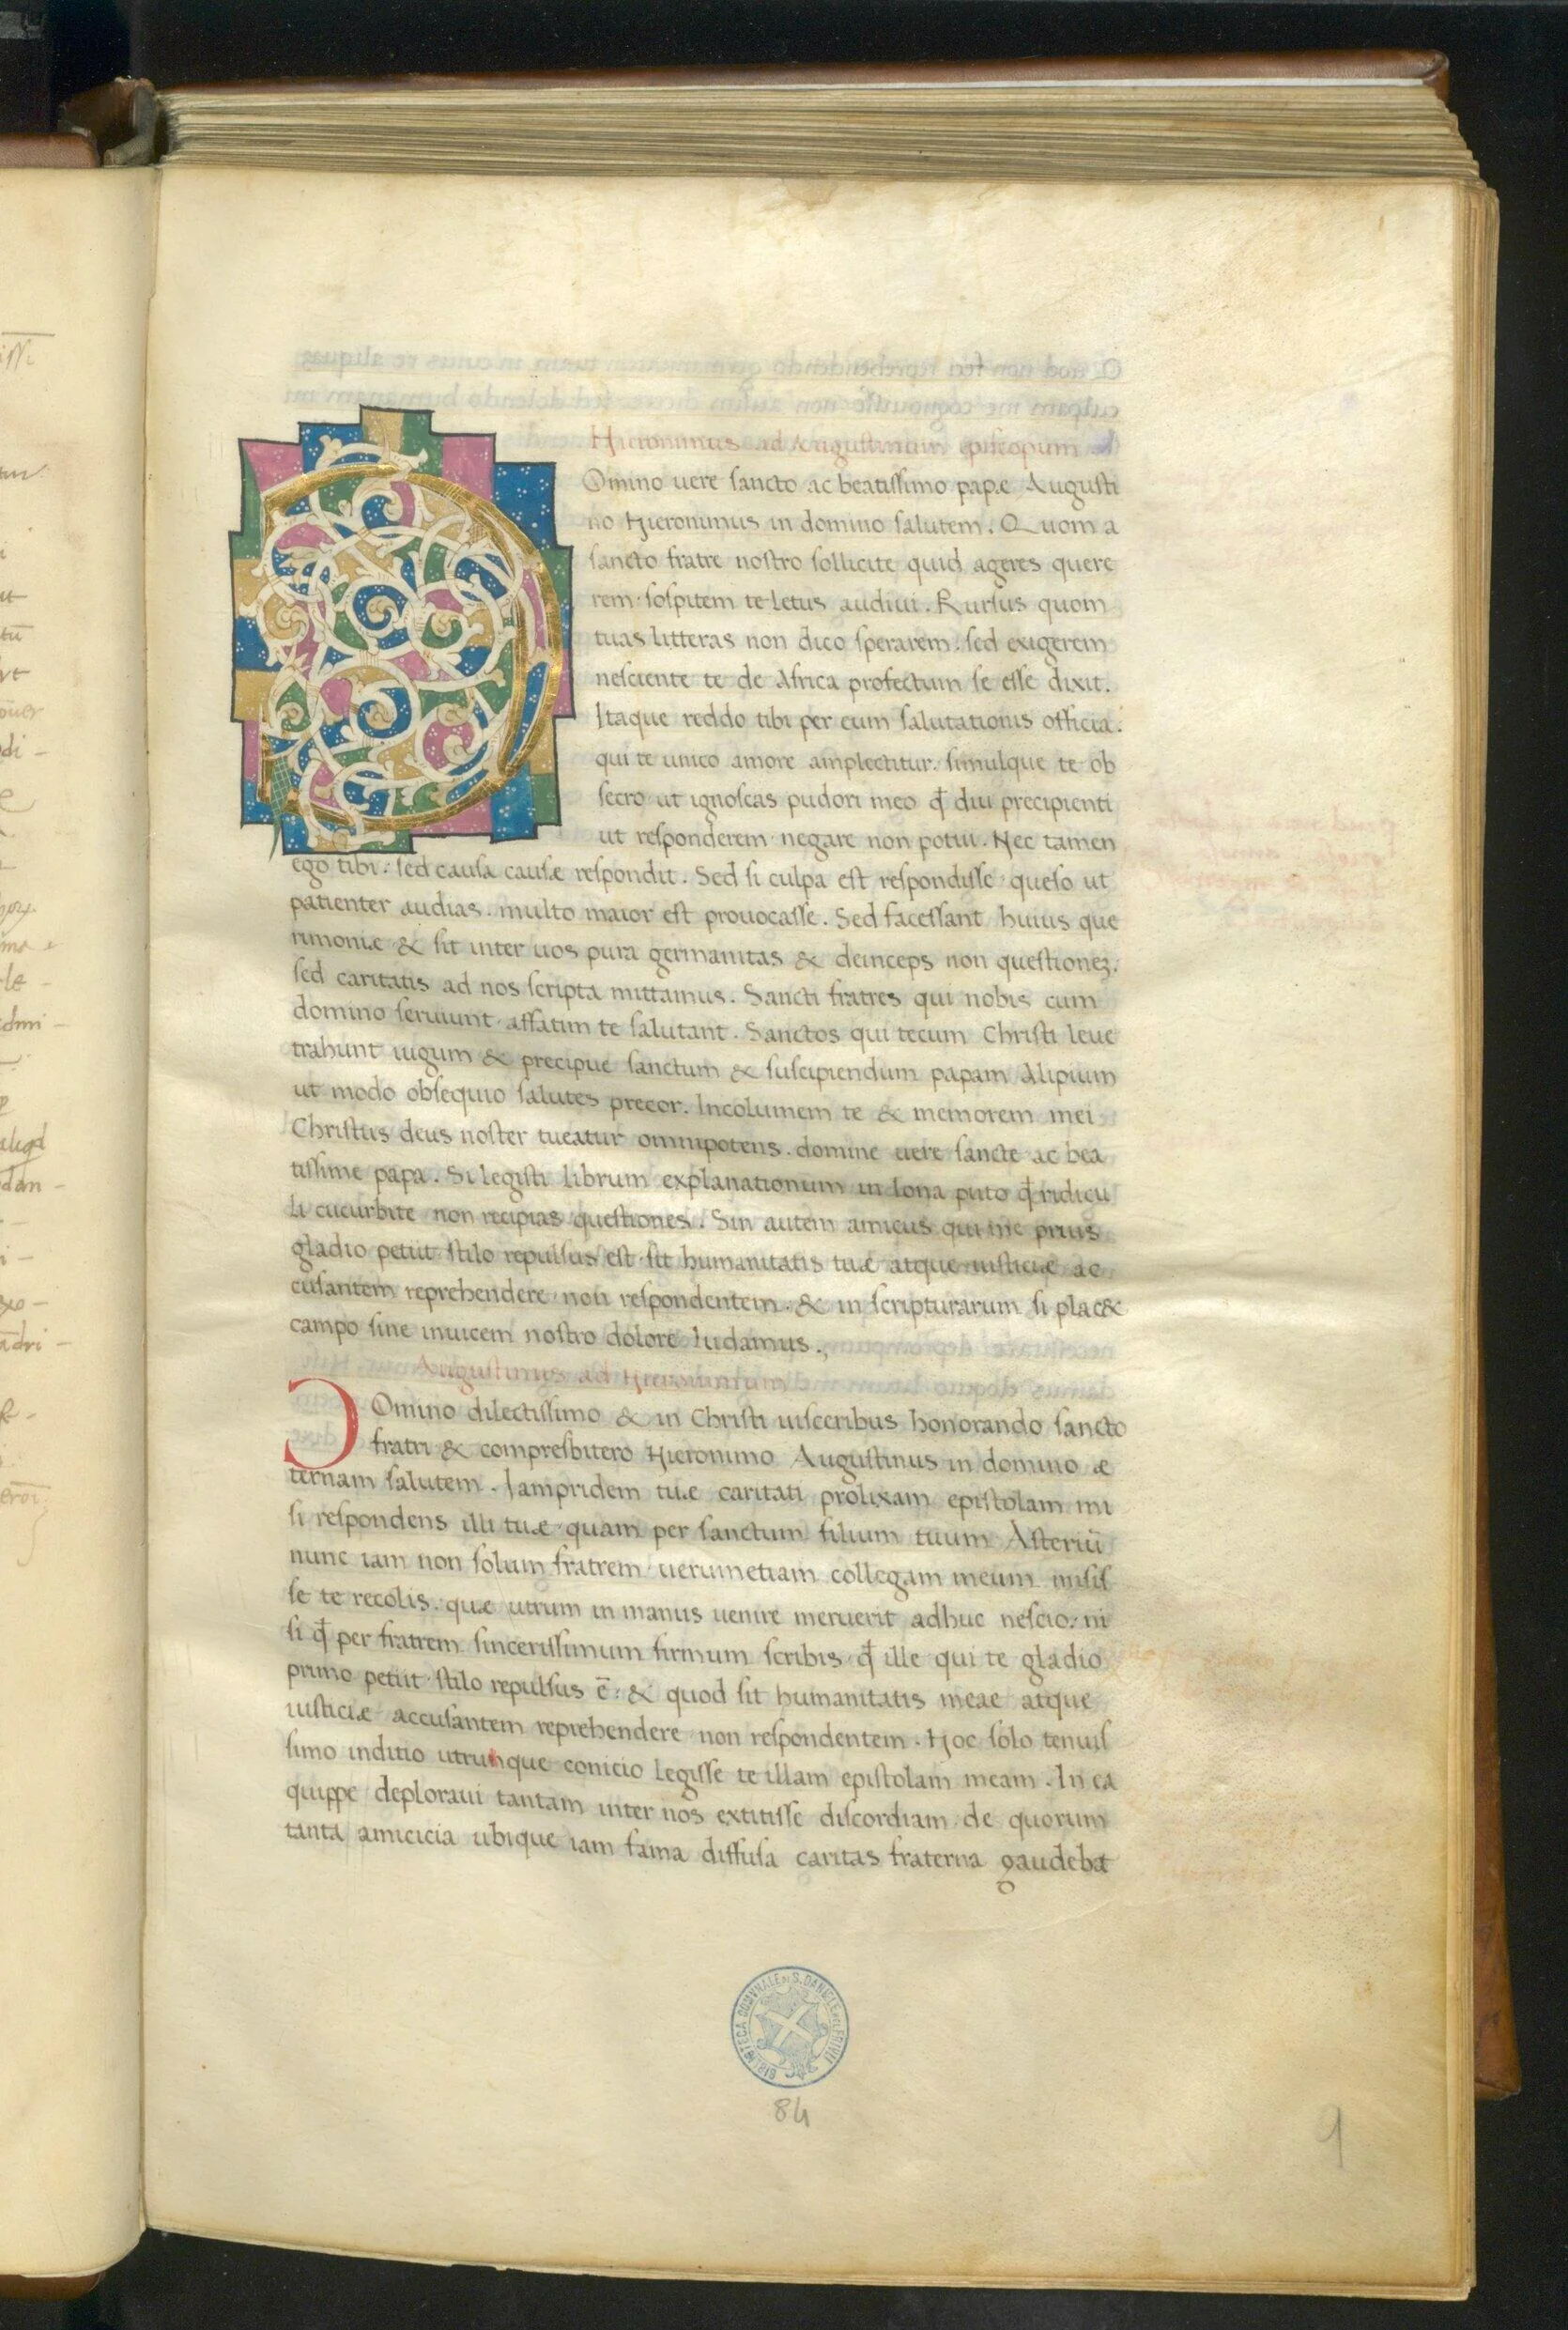 Hieronimus ad Augustinum episcopum
Omino uere sancto ac beatissimo papæ Augusti
no Hieronimus in domino salutem. Quom a
sancto fratre nostro sollicite quid ageres quere
rem sospitem te letus audiui. Rursus quom
tuas litteras non dico sperarem. sed exigerem
nesciente te de Africa profectum se esse dixit.
Itaque reddo tibi per eum salutationis officia.
qui te unico amore amplectitur. simulque te ob
secro ut ignoscas pudori meo ꝙ diu precipienti
ut responderem negare non potui. Nec tamen
ego tibi. sed causa causæ respondit. Sed si culpa est respondisse queso ut
patienter audias. multo maior est prouocasse. Sed facessant huius que
rimoniæ & sit inter uos pura germanitas & deinceps non questionez.
sed caritatis ad nos scripta mittamus. Sancti fratres qui nobis cum
domino seruiunt affatim te salutant. Sanctos qui tecum Christi leue
trahunt iugum & precipue sanctum & suscipiendum papam Alipium
ut modo obsequio salutes precor. Incolumem te & memorem mei
Christus deus noster tueatur omnipotens. domine uere sancte ac bea
tissime papa. Si legisti librum explanationum in Iona puto ꝙ ridicu
li cucurbite non recipias questiones. Sin autem amicus qui me prius
gladio petiit stilo repulsus est sit humanitatis tuæ atque iusticiæ ac
cusantem reprehendere non respondentem. & in scripturarum si plac&
campo sine inuicem nostro dolore ludamus.
Augustinus ad Hieronimum
D Omino dilectissimo & in Christi uisceribus honorando sancto
fratri & compresbitero Hieronimo Augustinus in domino æ
ternam salutem. Iampridem tuæ caritati prolixam epistolam mi
si respondens illi tuæ quam per sanctum filium tuum Asteriū
nunc iam non solum fratrem uerumetiam collegam meum misis
se te recolis. quæ utrum in manus uenire meruerit adhuc nescio. ni
si ꝙ per fratrem sincerissimum firmum scribis ꝙ ille qui te gladio
primo petiit stilo repulsus ē. & quod sit humanitatis meae atque
iusticiæ accusantem reprehendere non respondentem. Hoc solo tenuis
simo inditio utrunque conicio legisse te illam epistolam meam. In ea
quippe deploraui tantam inter nos extitisse discordiam de quorum
tanta amicicia ubique iam fama diffusa caritas fraterna gaudebat
BIBLIOTECA COMVNALE DI S. DANIELE DEL FRIVLI
84
9